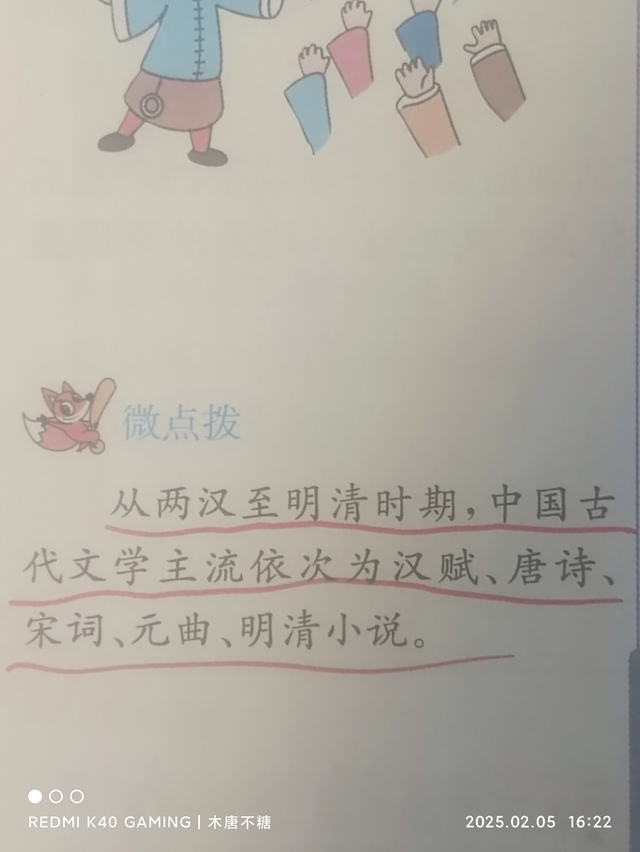 微点拨
从两汉至明清时期，中国古
代文学主流依次为汉赋、唐诗、
宋词、元曲、明清小说。
REDMI K40 GAMING | 木唐不糖
2025.02.05 16:22